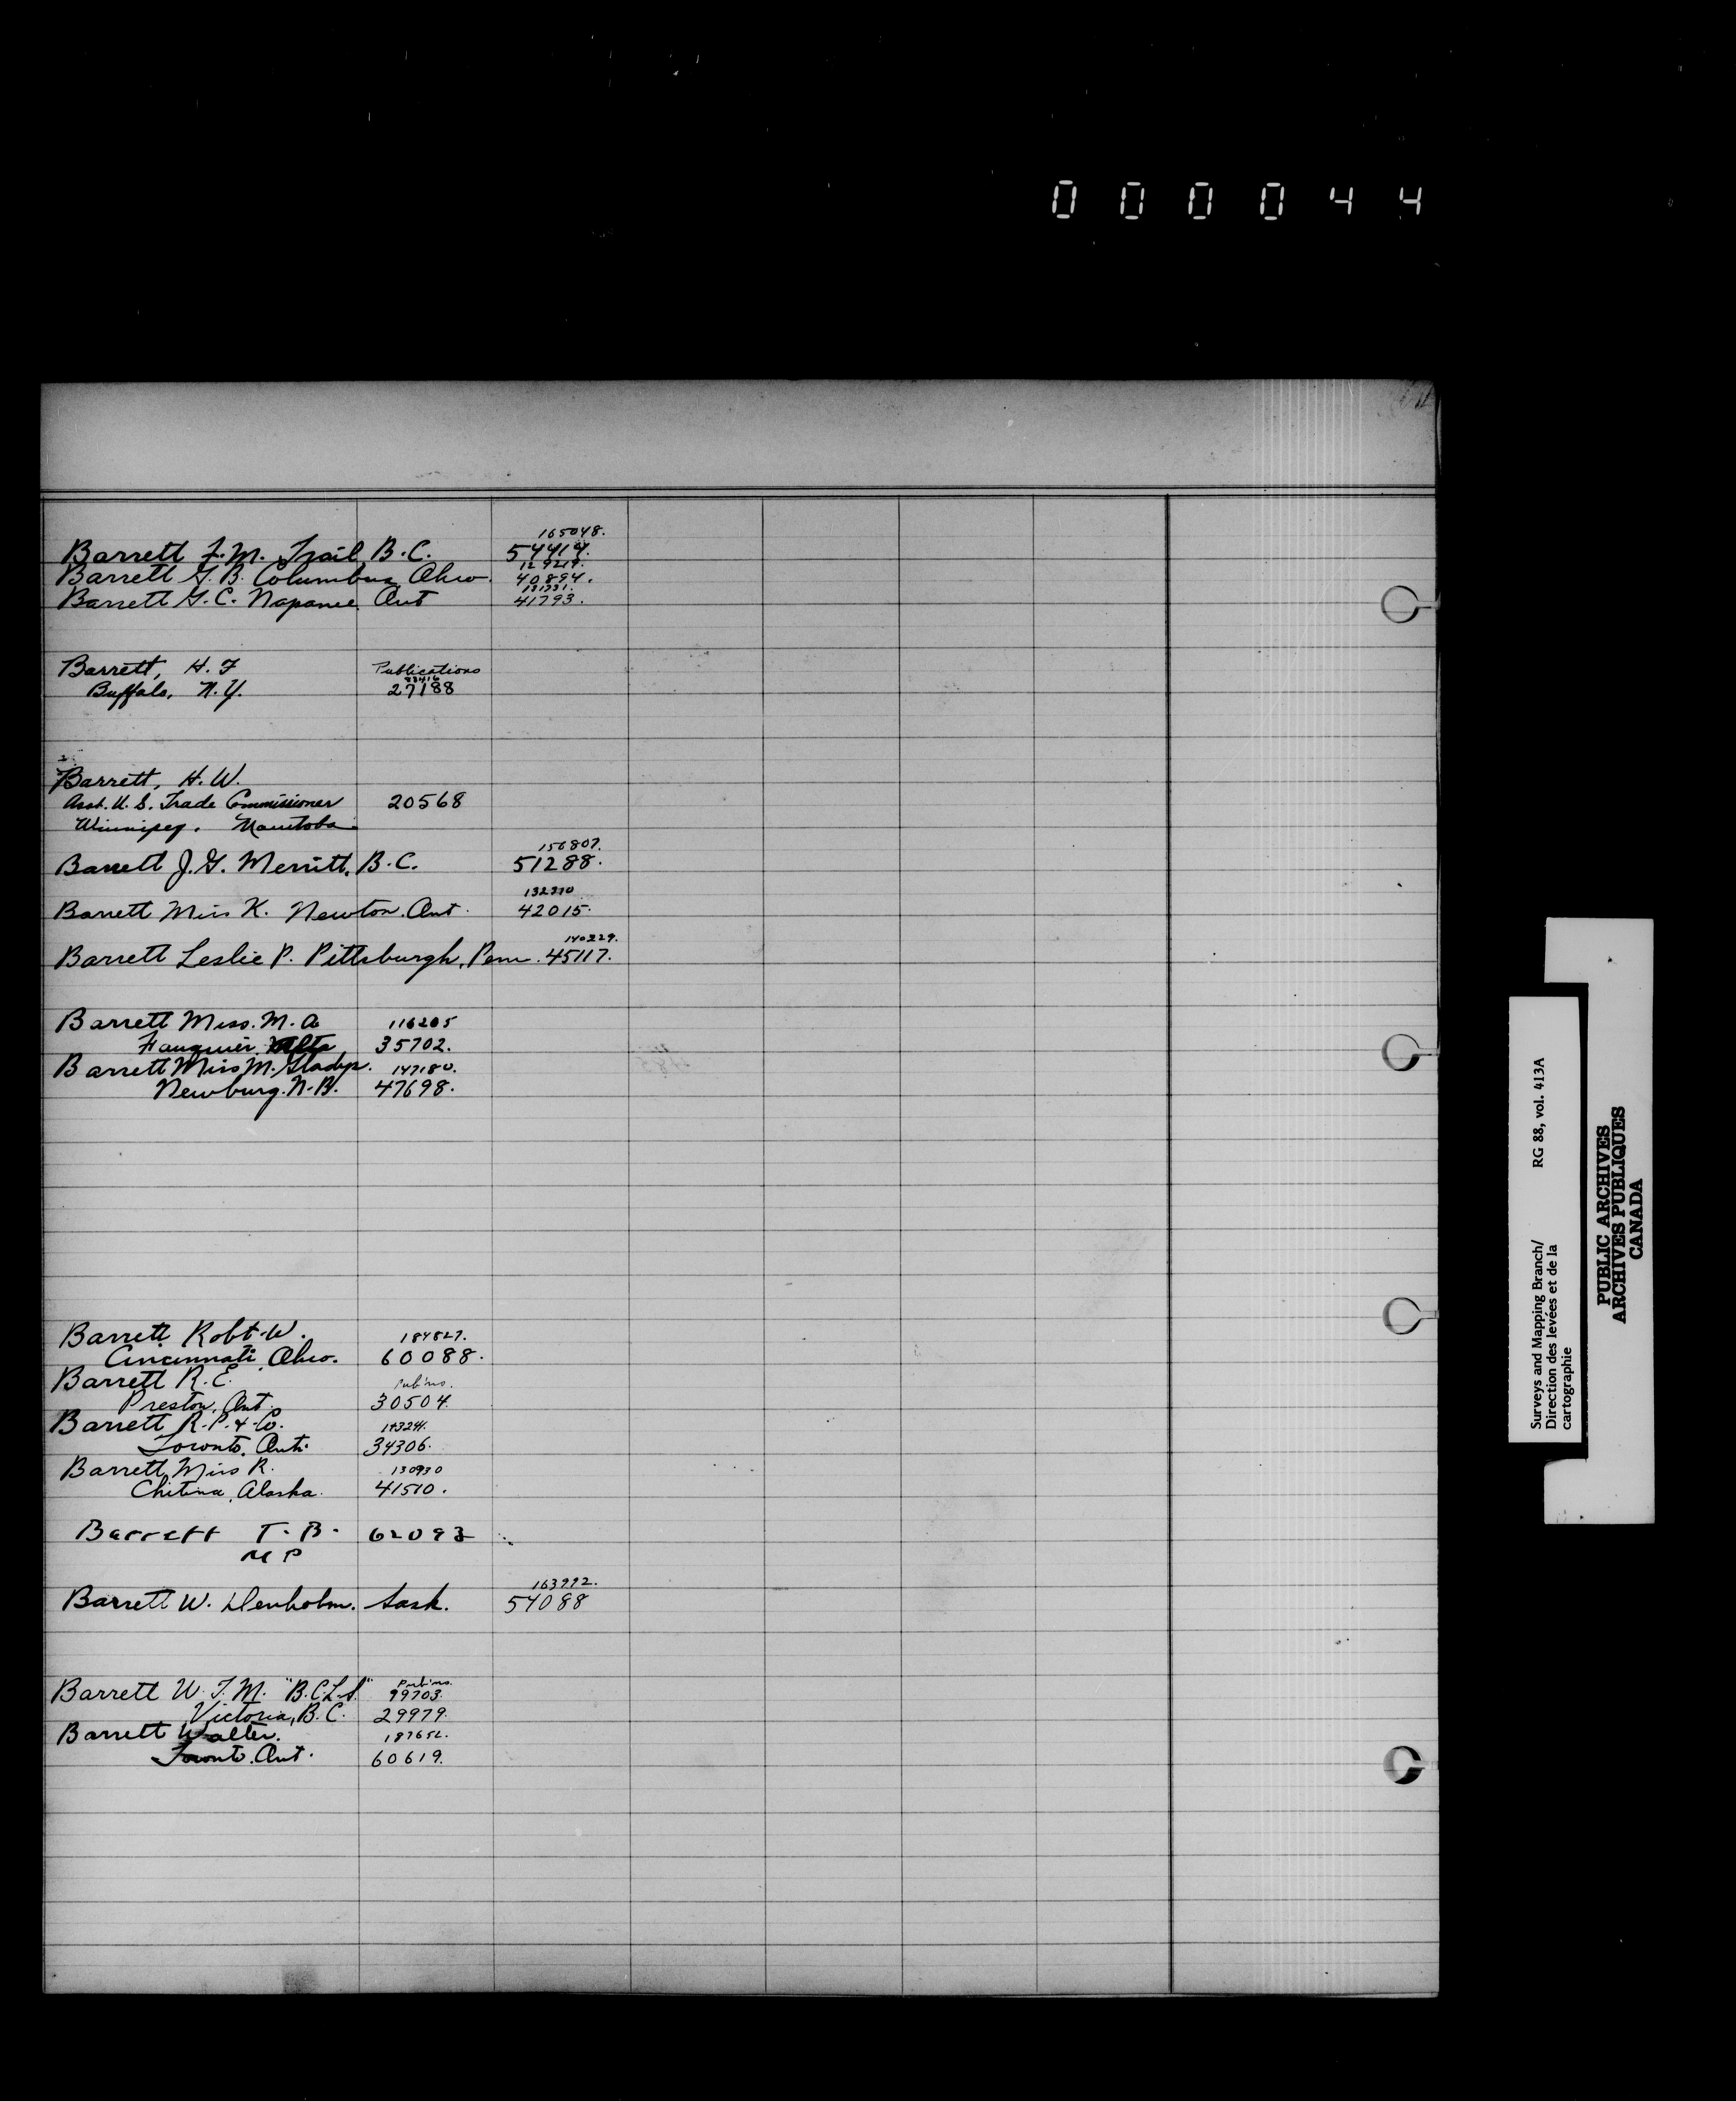 000044
165048.
Barrett F. M. Trail, B.C. 54414.
129219.
Barrett G. B. Columbus, Ohio. 40894.
131731.
Barrett G. C. Napanee, Ont 41793.
Barrett, H. F Publications
83416
Buffalo, N.Y. 27188
Barrett, H. W.
Asst. U. S. Trade Commissioner 20568
Winnipeg. Manitoba
156807.
Barrett J. G. Merritt, B.C. 51288.
132270
Barrett Miss K. Newton. Ont. 42015.
140229.
Barrett Leslie P. Pittsburgh, Penn. 45117.
Barrett Miss. M. A 116205
Fauquier, 35702.
Barrett Miss M. Gladys. 147180.
Newburg. N.B. 47698.
Barrett Robt. W. 184827.
Cincinnati, Ohio. 60088.
Barrett R. E. Pub'ns.
Preston, Ont. 30504.
Barrett R. P. & Co.
Toronto, Ont. 34306.
Barrett, Miss R. 130930
Chitina, Alaska. 41510.
Barrett T. B. 62093
M P
163992.
Barrett W. Denholm. Sask. 54088
Barrett W. T. M. "B.C.L.S." Pub'ns.
99703.
Victoria, B.C. 29979.
Barrett Walter. 187652.
Toronto. Ont. 60619.
Surveys and Mapping Branch/ RG 88, vol. 413A
Direction des levées et de la
cartographie
PUBLIC ARCHIVES
ARCHIVES PUBLIQUES
CANADA